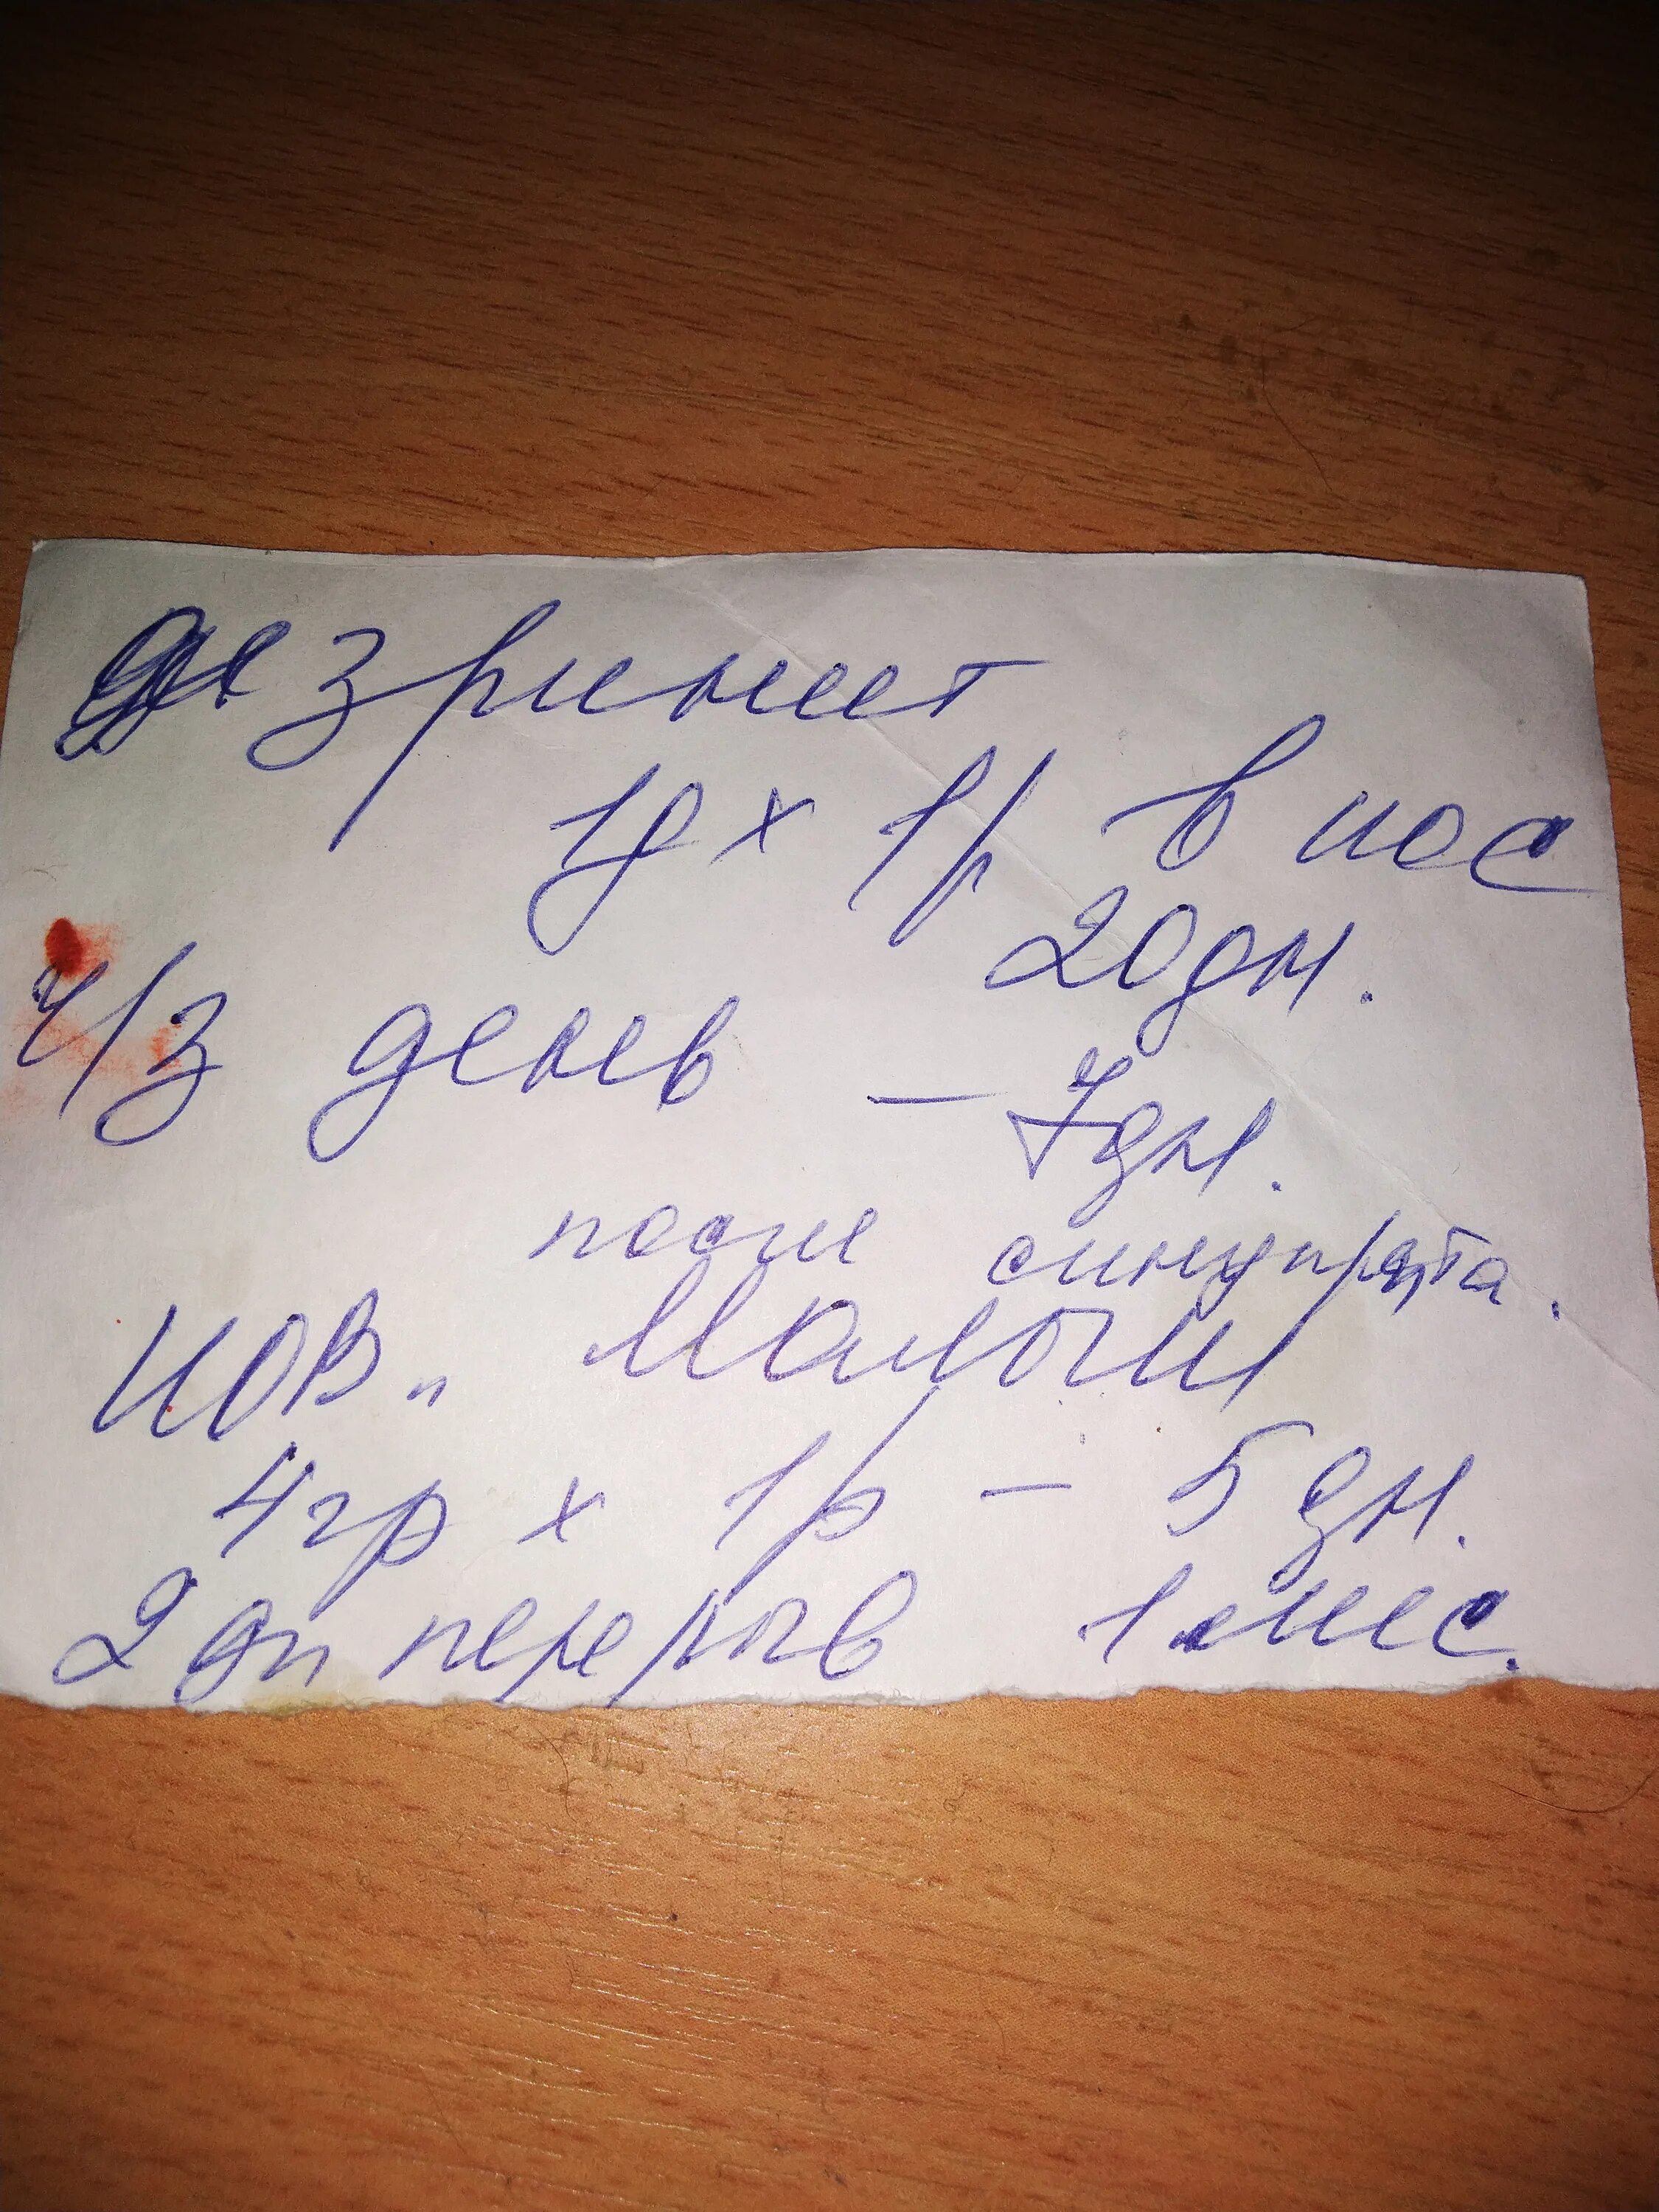 Дезринит
1д х 1р в нос
20дн.
ч/з день - 7дн.
после синупрета.
ИОВ " Малыш
4гр х 1р - 5 дн.
2 дн перерыв 1 мес.